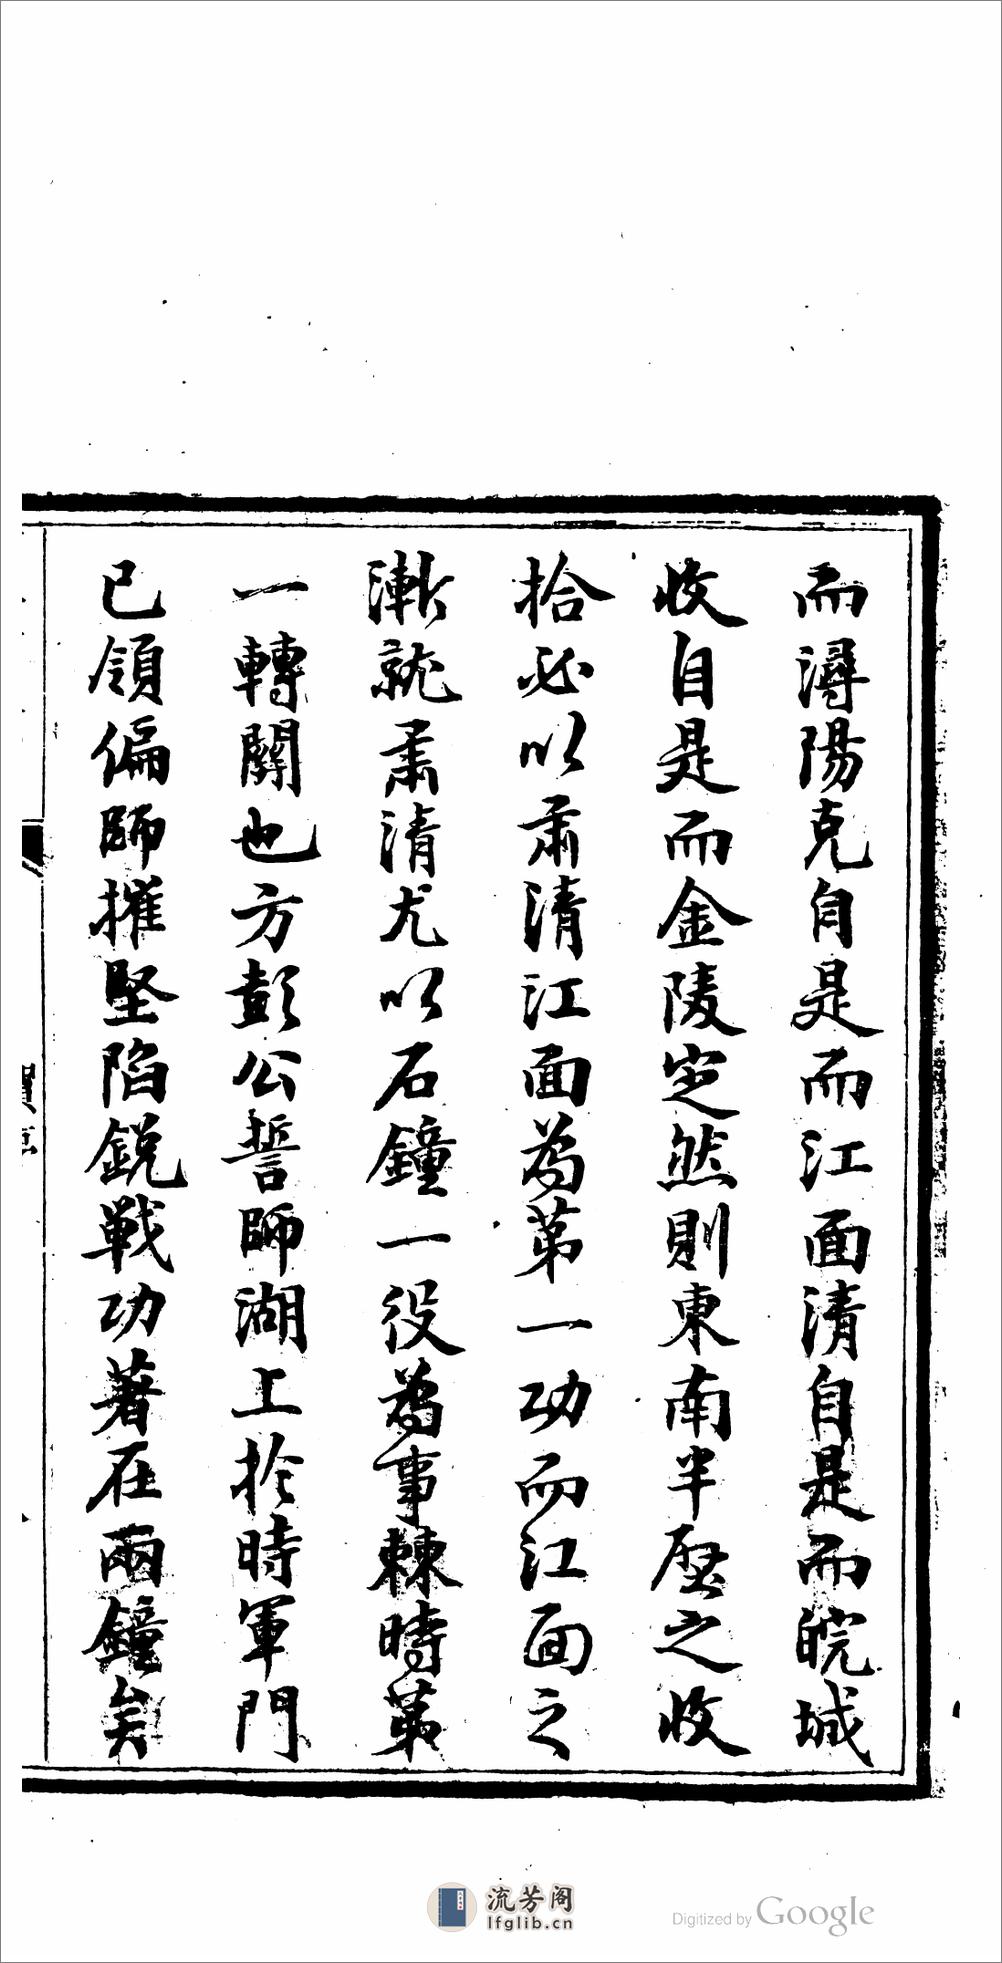 而潯陽克自是而江面清自是而皖城
收自是而金陵定然則東南半壁之收
拾必以肅清江面為第一功而江面之
漸就肅清尤以石鐘一役為事棘時第
一轉關也方彭公誓師湖上於時軍門
已領偏師摧堅陷銳戰功著在兩鐘矣
流芳阁
lfglib.cn
Digitized by Google